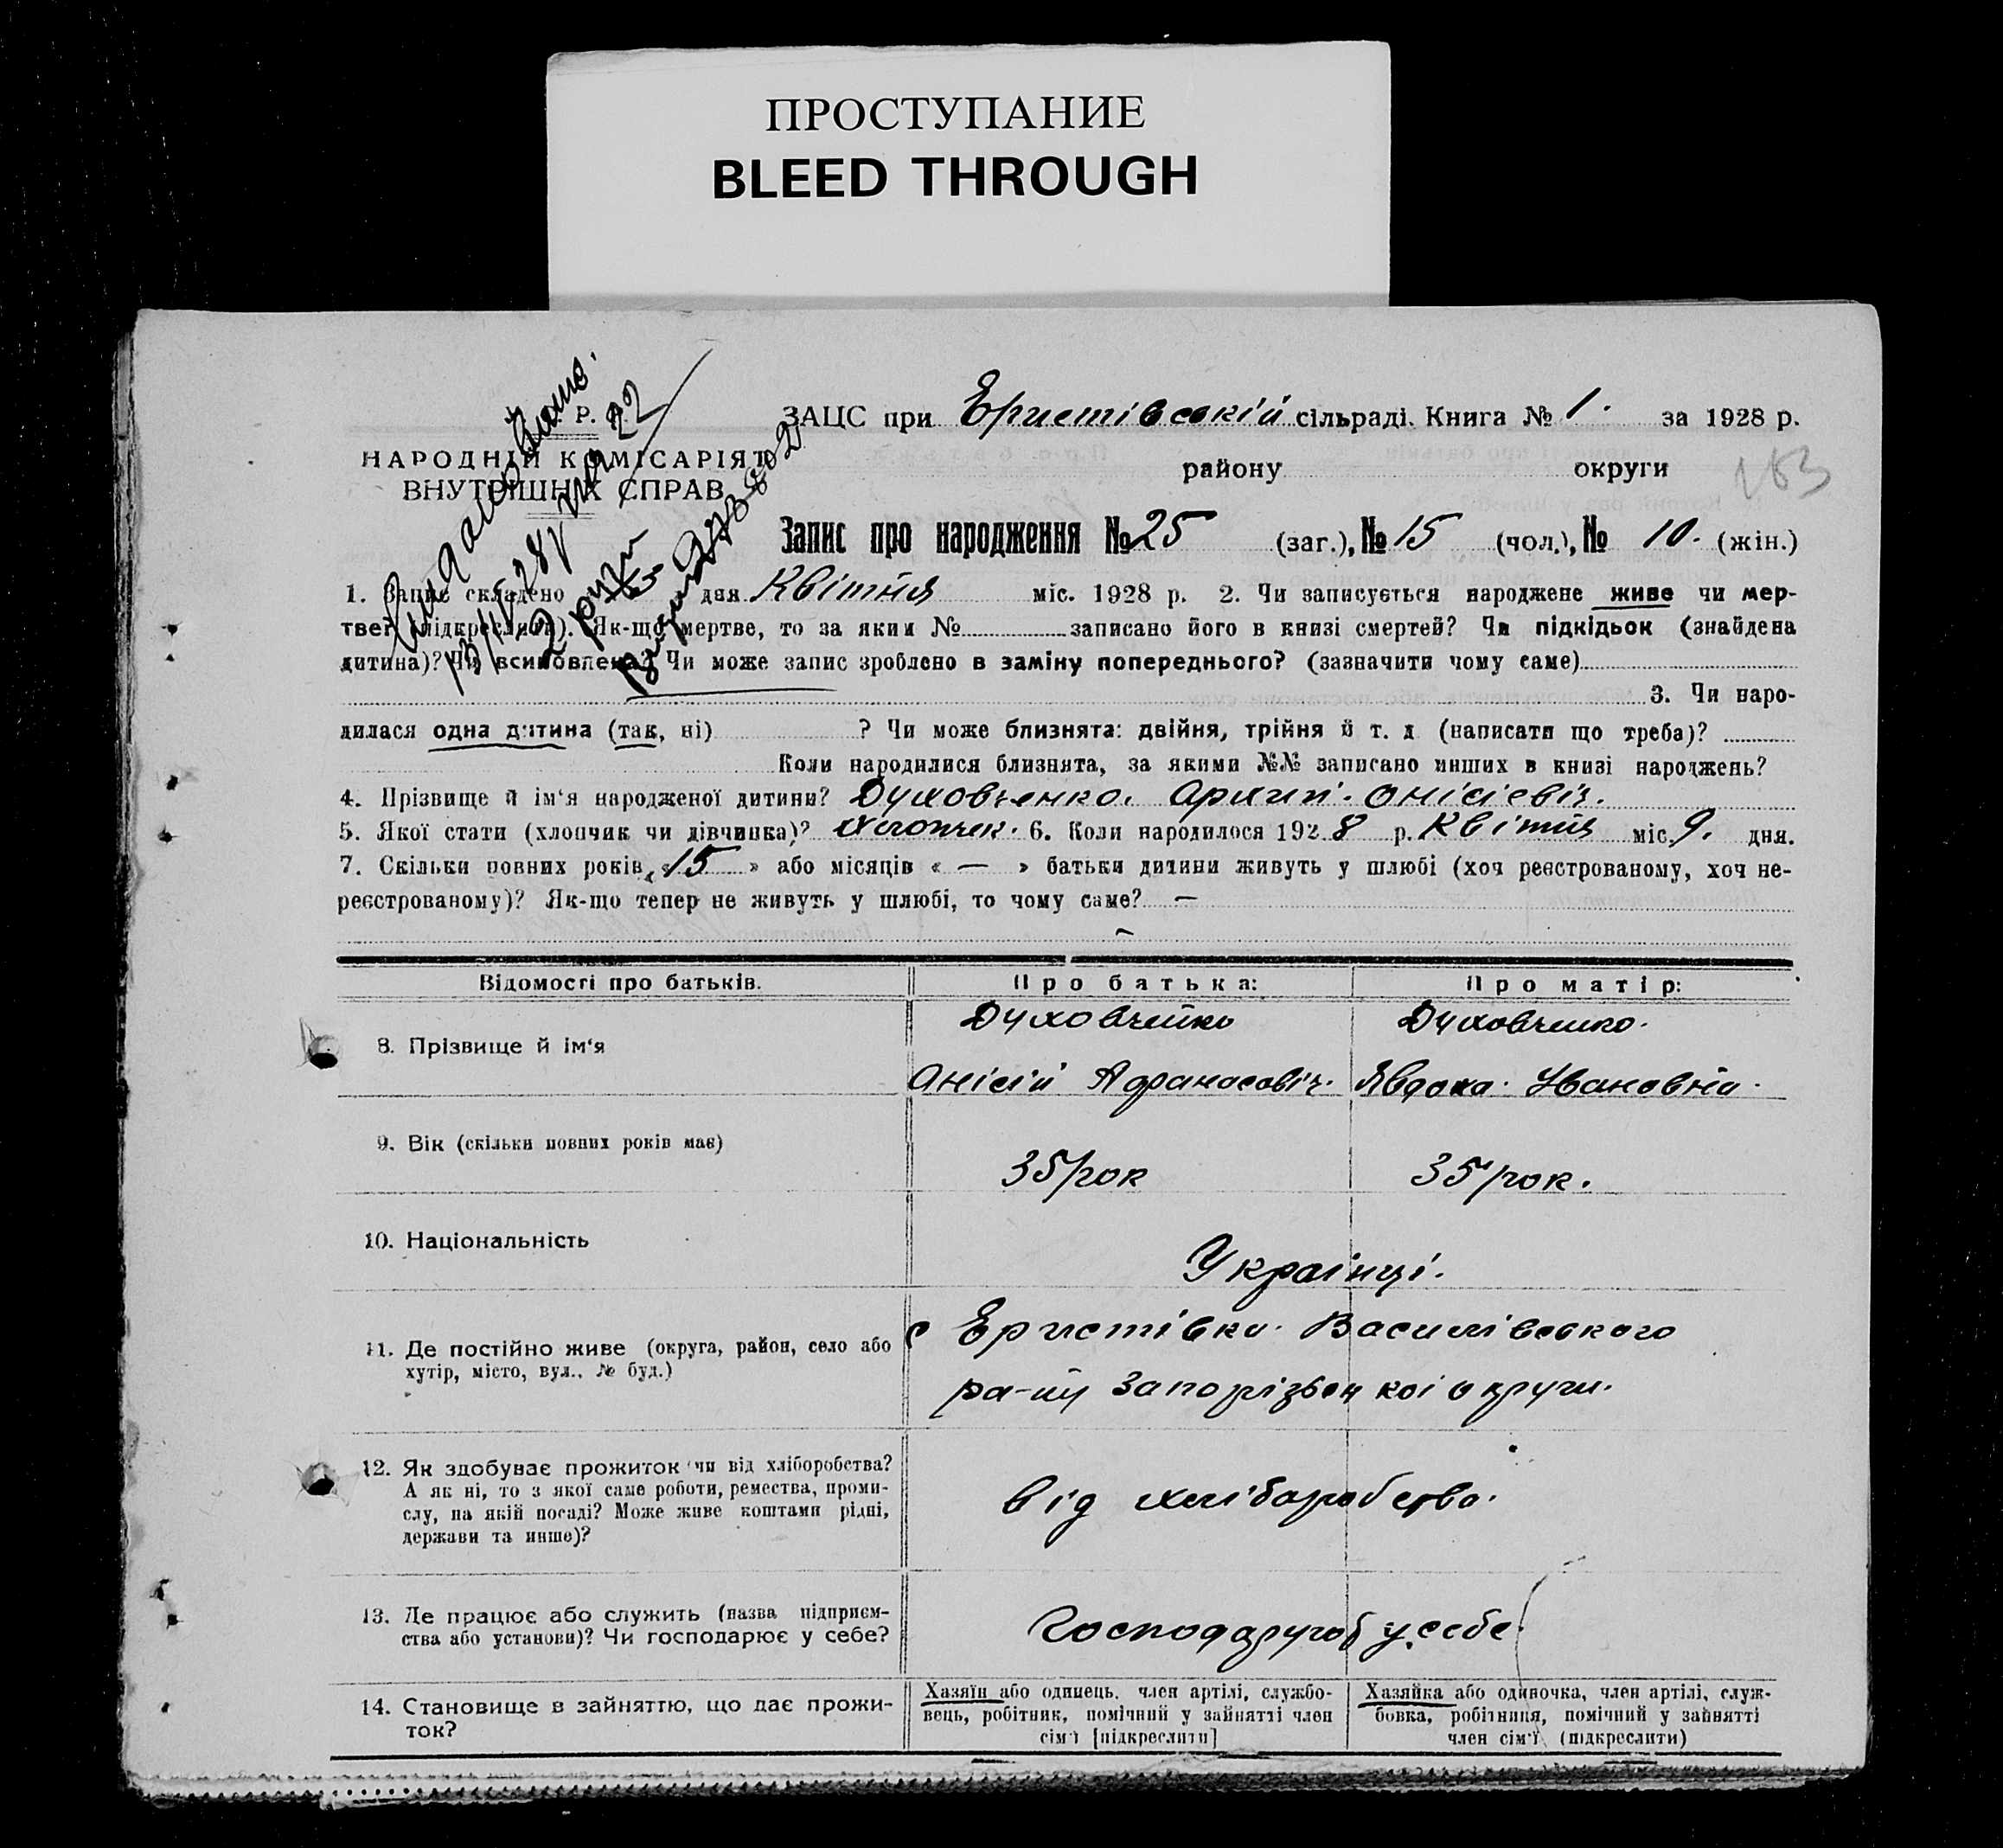 ПРОСТУПАНИЕ
BLEED THROUGH
Р.
ЗАЦС при Еристівській сільраді. Книга № 1. за 1928 р.
НАРОДНІЙ КОМІСАРІЯТ
району округи
ВНУТРІШНІХ СПРАВ
163
Запис про народження № 25 (заг.), № 15 (чол.), № 10. (жін.)
1. Запис складено дня Квітня міс. 1928 р. 2. Чи записується народжене живе чи мер-
тве (підкреслити). Як-що мертве, то за яким № записано його в книзі смертей? Чи підкідьок (знайдена
дитина)? Чи всиновлена? Чи може запис зроблено в заміну попереднього? (зазначити чому саме)
3. Чи наро-
дилася одна дитина (так, ні) ? Чи може близнята: двійня, трійня й т. д (написати що треба)?
Коли народилися близнята, за якими №№ записано инших в книзі народжень?
4. Прізвище й ім'я народженої дитини? Духовченко. Архип. Онісієвіч.
5. Якої стати (хлопчик чи дівчинка)? Хлопчек. 6. Коли народилося 1928 р. Квітня міс. 9. дня.
7. Скільки повних років «15» або місяців « — » батьки дитини живуть у шлюбі (хоч реєстрованому, хоч не-
реєстрованому)? Як-що тепер не живуть у шлюбі, то чому саме? —
Відомості про батьків. Про батька: Про матір:
Духовченко Духовченко.
8. Прізвище й ім'я
Онісій Афанасовіч. Явдоха. Івановна.
9. Вік (скільки повних років має)
35 рок 35 рок.
10. Національність
Українці.
11. Де постійно живе (округа, район, село або
хутір, місто, вул., № буд.)
с Еристівка. Василівського
ра-ну Запорізької округи.
12. Як здобуває прожиток чи від хліборобства?
А як ні, то з якої саме роботи, ремества, проми-
слу, на якій посаді? Може живе коштами рідні,
держави та инше)?
від хліборобства.
13. Де працює або служить (назва підприєм-
ства або установи)? Чи господарює у себе?
у себе
14. Становище в зайняттю, що дає прожи-
ток?
Хазяїн або одинець, член артілі, службо-
вець, робітник, помічний у зайнятті член
сім'ї [підкреслити]
Хазяйка або одиночка, член артілі, служ-
бовка, робітниця, помічний у зайнятті
член сім'ї (підкреслити)